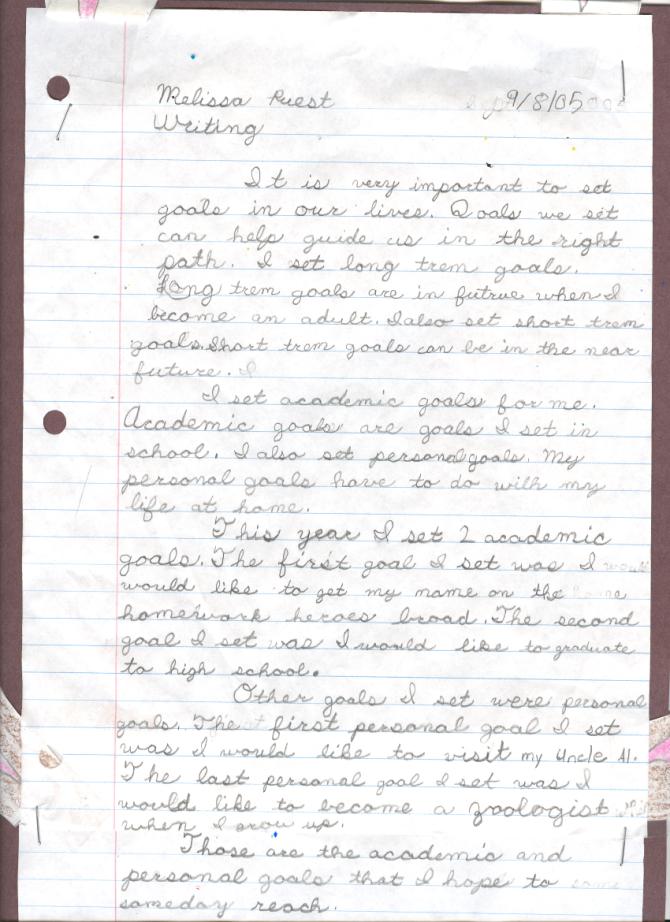 Melissa Ruest 9/8/05
Writing
It is very important to set
goals in our lives. Goals we set
can help guide us in the right
path. I set long trem goals.
Long trem goals are in futrue when I
become an adult. I also set short trem
goals. Short trem goals can be in the near
future. I
I set academic goals for me.
Academic goals are goals I set in
school. I also set personal goals. My
personal goals have to do with my
life at home.
This year I set 2 academic
goals. The first goal I set was I would
would like to get my name on the home
homework heroes broad. The second
goal I set was I would like to graduate
to high school.
Other goals I set were personal
goals. The first personal goal I set
was I would like to visit my Uncle Al.
The last personal goal I set was I
would like to become a zoologist
when I grow up.
Those are the academic and
personal goals that I hope to some
someday reach.